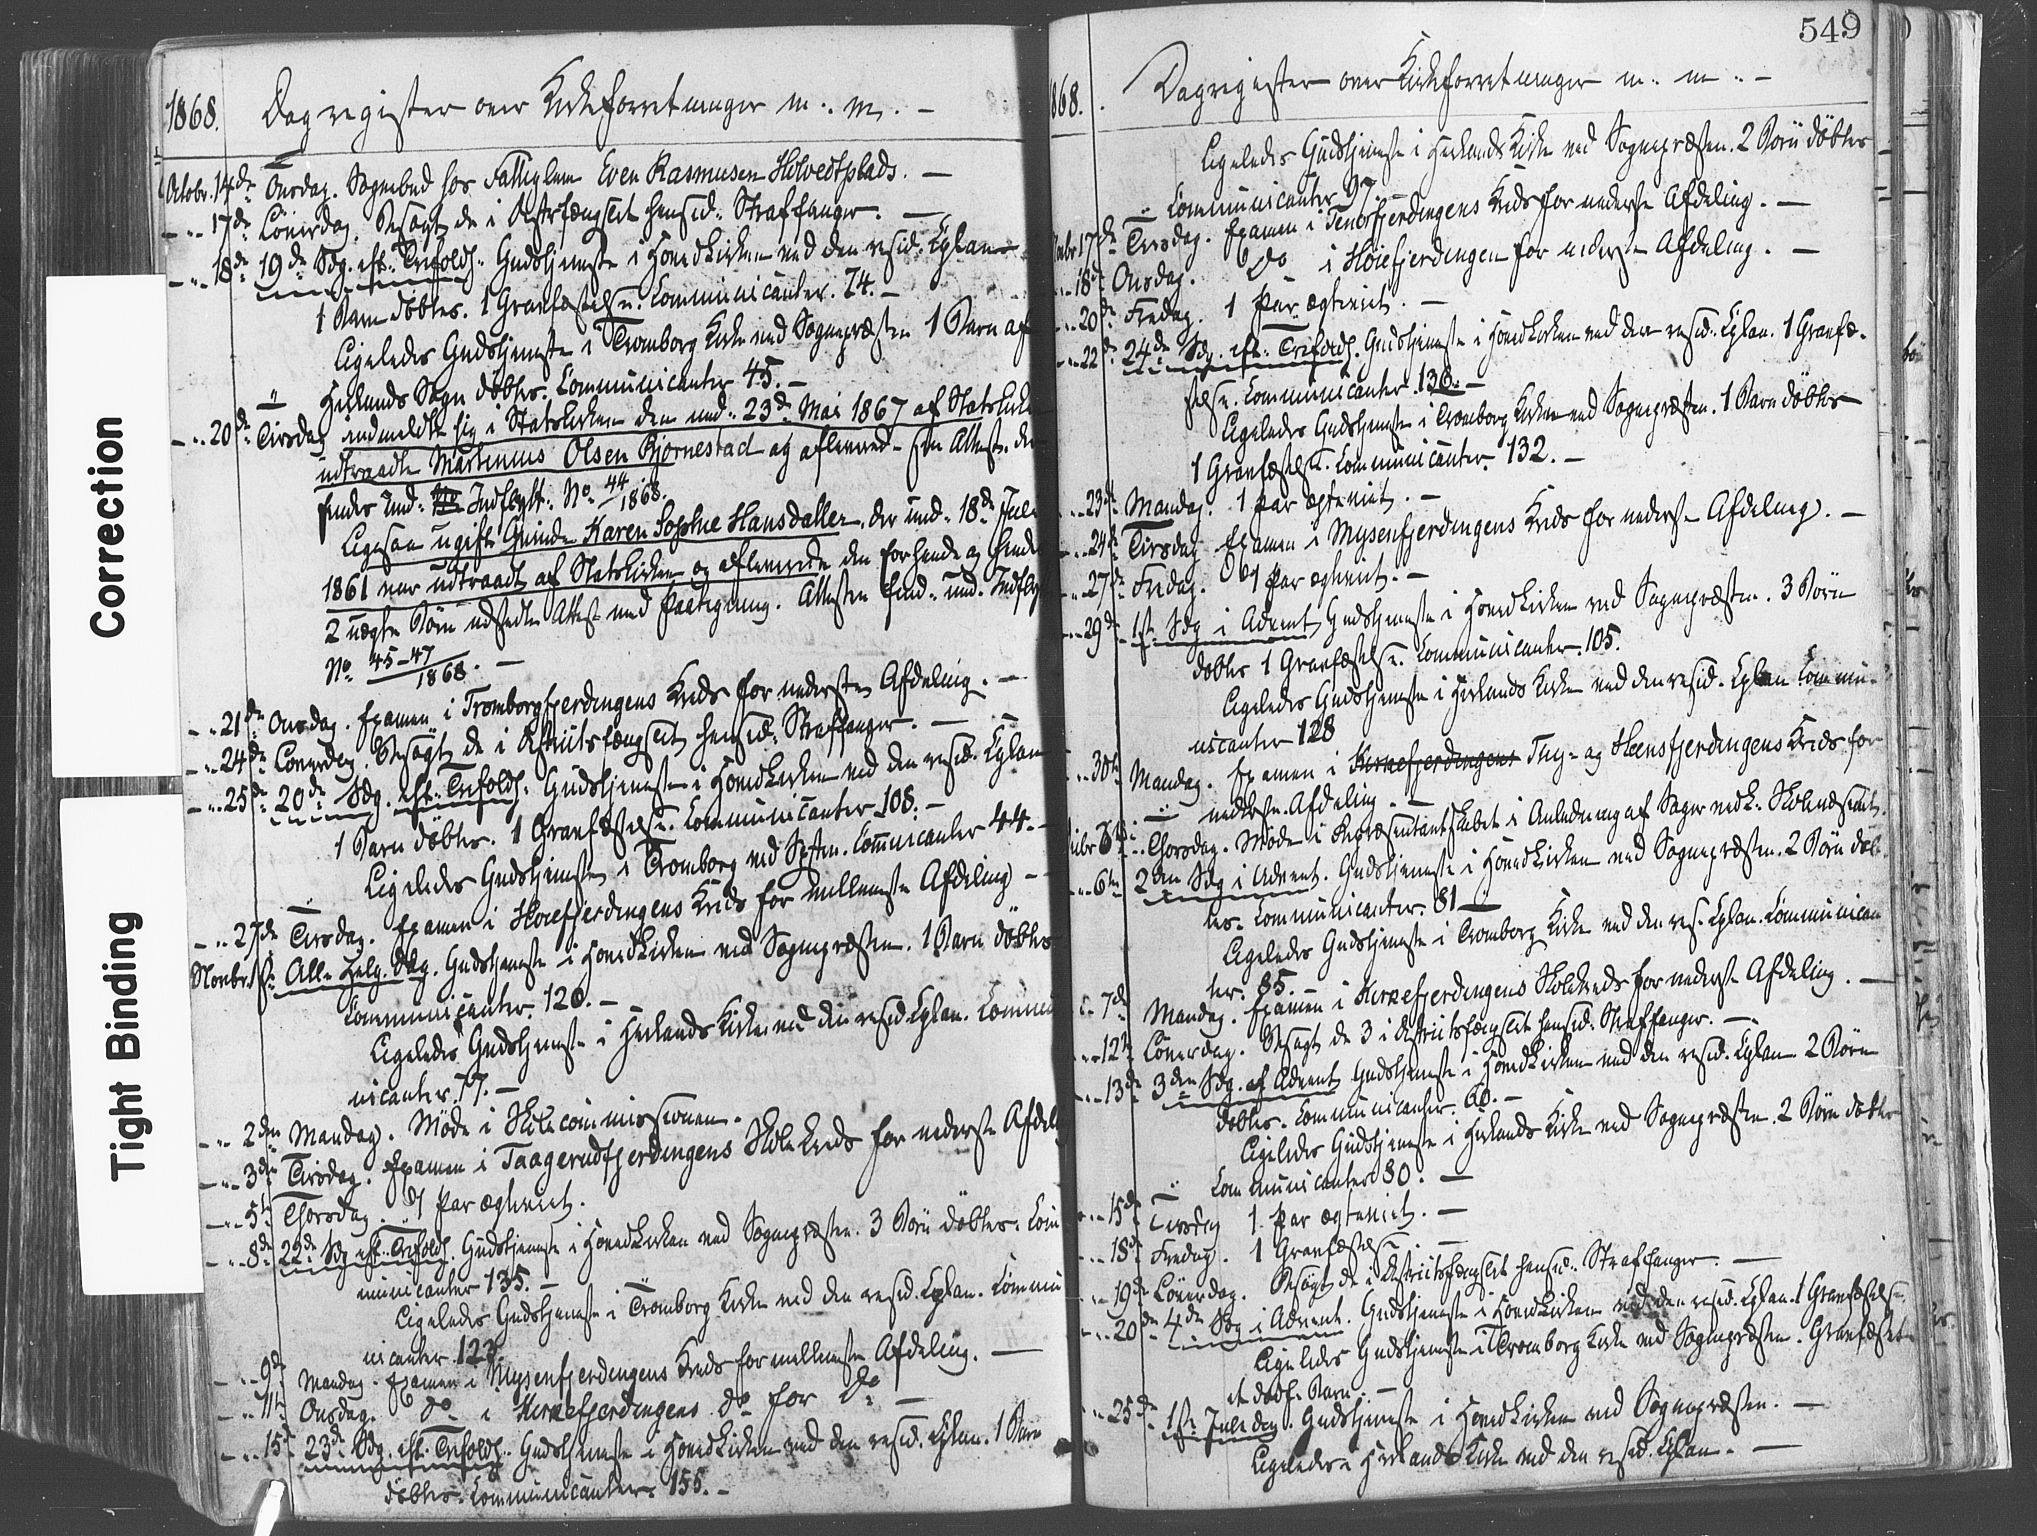 Correction
Tight Binding
1868. Dagregister over Kirkeforretninger m. m. –
Octobr. 14de Onsdag. Sognebud hos Fattiglem Even Rasmusen Holvedtplads. –
– „ 17de Löverdag. Besøgt de i Distrfængslet hensid. Straffanger. –
– „ 18de 19de Sdg. eft. Trefoldh. Gudstjeneste i Hovedkirken ved den resid. Cplan –
1 Barn döbtes. 1 Gravfæstelse. Communicanter. 74. –
Ligeledes Gudstjeneste i Tromborg Kirke ved Sognepræsten 1 Barn af
Herlands Sogn döbtes. Communicanter 45. –
– „ 20de Tirsdag indmeldte sig i Statskirken den und. 23de Mai 1867 af Statskirke
udtraadte Martinius Olsen Bjørnestad og afleverede sin Attest. der
findes und. Indflytt. No 44/1868.
Ligesaa ugift Qvinde Karen Sophie Hansdatter, der und. 18de Juli
1861 var udtraadt af Statskirken og afleverede den for hende og hendes
2 uægte Börn udstedte Attest med Paategning. Attesten find. und. Indfly
No 45–47/1868. –
– „ 21de Onsdag. Examen i Tromborgfjerdingens Kreds for nederste Afdeling. –
– „ 24de Löverdag. Besøgt de i Distriktsfængslet hensid. Straffanger. –
– „ 25de 20de Sdg. eft. Trefoldh. Gudstjeneste i Hovedkirken ved den resid. Cplan
1 Barn döbtes. 1 Gravfæstelse. Communicanter 108. –
Ligeledes Gudstjeneste i Tromborg ved Spsten. Communicanter 44. –
– „ 27de Tirsdag. Examen i Høiefjerdingens Kreds for mellemste Afdeling –
Novbr. 1ste Alle Helg. Dag. Gudstjeneste i Hovedkirken ved Sognepræsten. 1 Barn döbtes
Communicanter. 120. –
Ligeledes Gudstjeneste i Herlands Kirke ved den resid Cplan. Commu
nicanter. 77. –
– „ 2den Mandag. Møde i Skolecommissionen.
– „ 3die Tirsdag. Examen i Taagerudfjerdingens Skolekreds for nederste Afdel
– „ 5te Thorsdag. 1 Par ægteviet.
– „ 8de 22de Sdg eft. Trefoldh. Gudstjeneste i Hovedkirken ved Sognepræsten. 3 Börn döbtes. Com
municanter 135. –
Ligeledes Gudstjeneste i Tromborg Kirke ved den resid. Cplan. Commu
nicanter 123
– „ 9de Mandag. Examen i Mysenfjerdingens Kreds for mellemste Afdeling. –
– „ 11te Onsdag. do i Kirkefjerdingens do for do –
– „ 15de 23de Sdg. eft. Trefoldh. Gudstjeneste i Hovedkirken ved den resid. Cplan. 1 Barn
döbtes. Communicanter. 155. –
549
868. Dagregister over Kirkeforretninger m. m. –
Ligeledes Gudstjeneste i Herlands Kirke ved Sognepræsten. 2 Börn döbtes
Communicanter 97 –
Novbr 17de Tirsdag. Examen i Tenorfjerdingens Kreds for nederste Afdeling. –
„ 18de Onsdag. do i Høiefjerdingen for nederste Afdeling. –
„ 20de Fredag. 1 Par ægteviet. –
„ 22de 24de Sdg. eft. Trefoldh. Gudstjeneste i Hovedkirken ved den resid. Cplan. 1 Gravfæ-
stelse. Communicanter. 130. –
Ligeledes Gudstjeneste i Tromborg Kirke ved Sognepræsten. 1 Barn döbtes
1 Gravfæstelse. Communicanter. 132. –
„ 23de Mandag. 1 Par ægteviet. –
„ 24de Tirsdag Examen i Mysenfjerdingens Kreds for nederste Afdeling. –
„ 27de Fredag. 1 Par ægteviet. –
„ 29de 1ste Sdg i Advent Gudstjeneste i Hovedkirken ved Sognepræsten. 3 Börn
döbtes 1 Gravfæstelse. Communicanter. 105.
Ligeledes Gudstjeneste i Herlands Kirke ved den resid. Cplan Commu-
nicanter 128
„ 30te Mandag. Examen i Kirkefjerdingens Tny- og Heensfjerdingens Kreds for
nederste Afdeling. –
Thorsdag. Møde i Repræsentantskabet i Anledning af Sager vedk. Skolevæsenet.
„ 6te 2den Sdg i Advent. Gudstjeneste i Hovedkirken ved Sognepræsten. 2 Börn döb-
tes. Communicanter. 81 –
Ligeledes Gudstjeneste i Tromborg Kirke ved den res. Cplan. Communican
ter. 85. –
„ 7de Mandag. Examen i Kirkefjerdingens Skolekreds for nederste Afdeling. –
„ 12te Löverdag. Besøgt de 3 i Distriktsfængslet hensid. Straffanger. –
„ 13de 3die Sdg. af Advent Gudstjeneste i Hovedkirken ved den resid. Cplan 2 Börn
döbtes. Communicanter. 60. –
Ligeledes Gudstjeneste i Herlands Kirke ved Sognepræsten. 2 Börn döbtes
Communicanter 80. –
„ 15de Tirsdag 1 Par ægteviet. –
„ 18de Fredag. 1 Gravfæstelse. –
„ 19de Löverdag. Besøgt de i Distriktsfængslet hensid. Straffanger. –
„ 20de 4de Sdg i Advent. Gudstjeneste i Hovedkirken ved den resid. Cplan. 1 Gravfæstelse.
Ligeledes Gudstjeneste i Tromborg Kirke ved Sognepræsten. Gravfæstet
et dødf. Barn. –
„ 25de 1ste Juledag. Gudstjeneste i Hovedkirken ved Sognepræsten. –
Ligeledes i Herlands Kirke ved den resid. Cplan. –